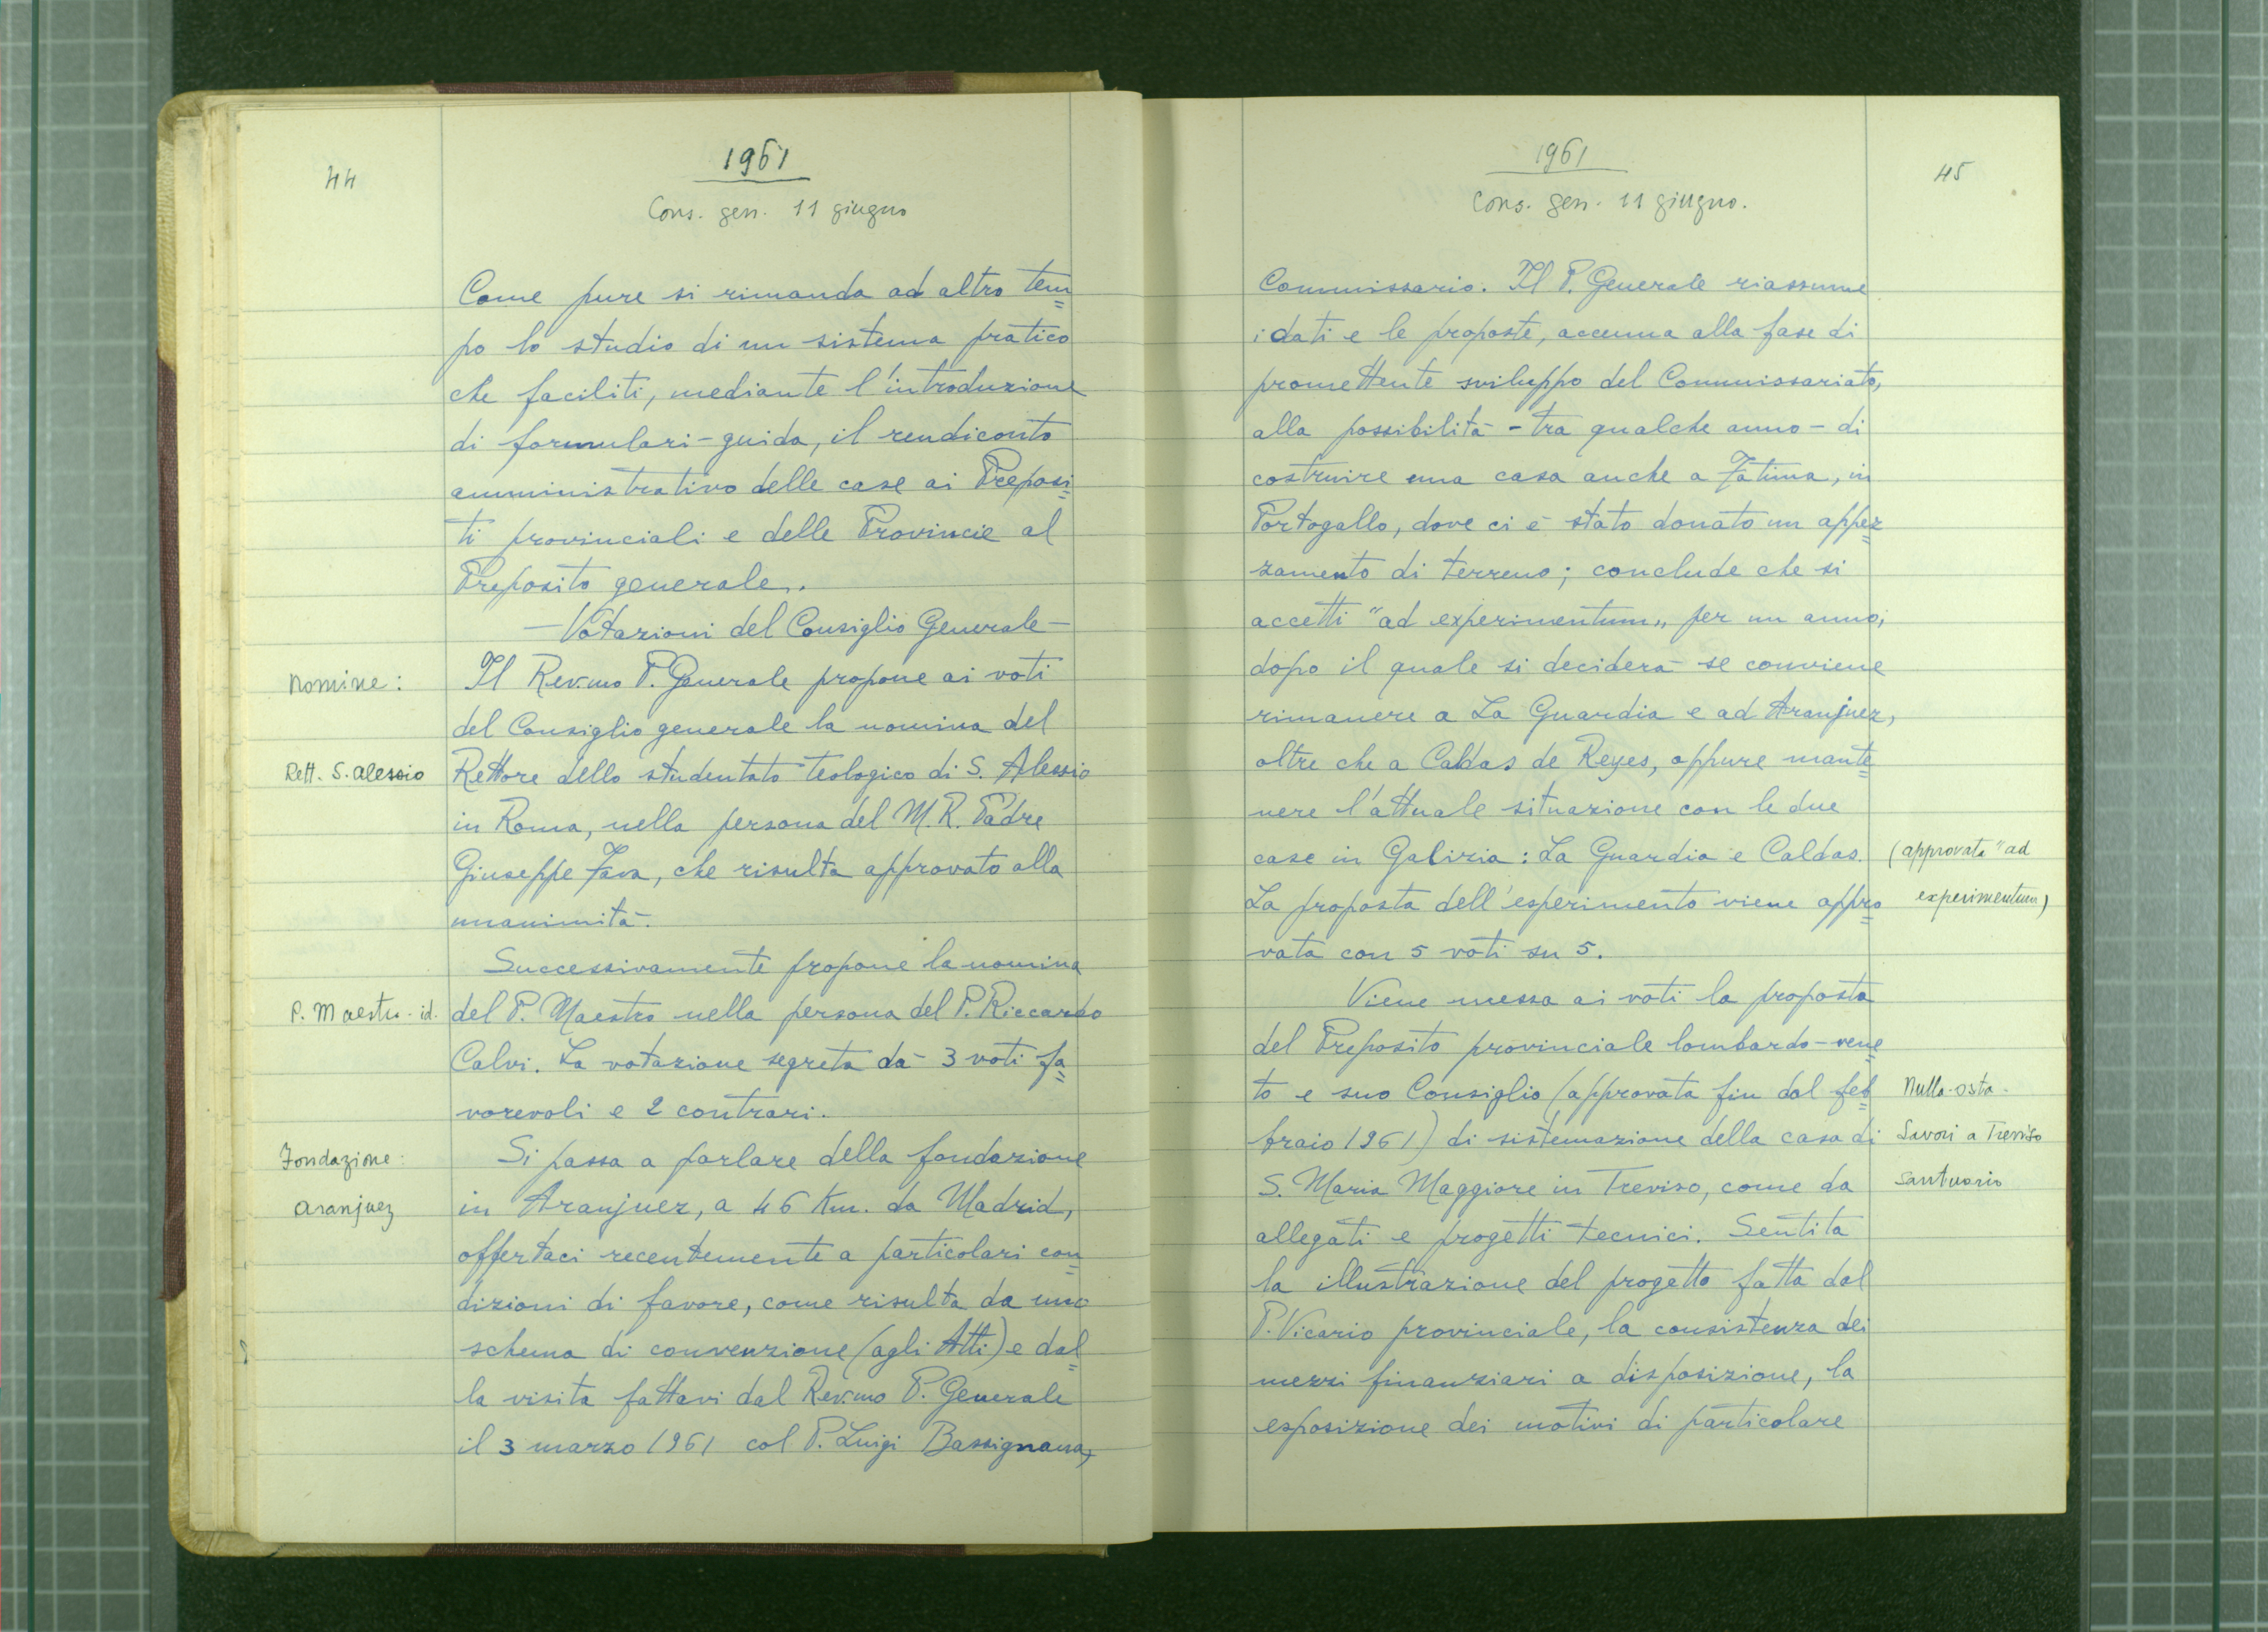 44
1961
Cons. gen. 11 giugno
Come pure si rimanda ad altro tem=
po lo studio di un sistema pratico
che faciliti, mediante l'introduzione
di formulari-guida, il rendiconto
amministrativo delle case ai Preposi=
ti provinciali e delle Provincie al
Preposito generale.
- Votazioni del Consiglio Generale -
Nomine: Il Rev.mo P. Generale propone ai voti
del Consiglio generale la nomina del
Rett. S. Alessio Rettore dello studentato teologico di S. Alessio
in Roma, nella persona del M. R. Padre
Giuseppe Fava, che risulta approvato alla
unanimità.
Successivamente propone la nomina
P. Maestro - id. del P. Maestro nella persona del P. Riccardo
Calvi. La votazione segreta dà 3 voti fa=
vorevoli e 2 contrari.
Fondazione: Si passa a parlare della fondazione
Aranjuez in Aranjuez, a 46 Km. da Madrid,
offertaci recentemente a particolari con=
dizioni di favore, come risulta da uno
schema di convenzione (agli Atti) e dal=
la visita fattavi dal Rev.mo P. Generale
il 3 marzo 1961 col P. Luigi Bassignana,
1961
45
Cons. gen. 11 giugno.
Commissario. Il P. Generale riassume
i dati e le proposte, accenna alla fase di
promettente sviluppo del Commissariato,
alla possibilità - tra qualche anno - di
costruire una casa anche a Fatima, in
Portogallo, dove ci è stato donato un appez=
zamento di terreno; conclude che si
accetti "ad experimentum" per un anno,
dopo il quale si deciderà se conviene
rimanere a La Guardia e ad Aranjuez,
oltre che a Caldas de Reyes, oppure mante=
nere l'attuale situazione con le due
case in Galizia: La Guardia e Caldas. (approvata "ad
La proposta dell'esperimento viene appro= experimentum)
vata con 5 voti su 5.
Viene messa ai voti la proposta
del Preposito provinciale lombardo-vene=
to e suo Consiglio (approvata fin dal feb= Nulla-osta -
braio 1961) di sistemazione della casa di Lavori a Treviso
S. Maria Maggiore in Treviso, come da Santuario
allegati e progetti tecnici. Sentita
la illustrazione del progetto fatta dal
P. Vicario provinciale, la consistenza dei
mezzi finanziari a disposizione, la
esposizione dei motivi di particolare